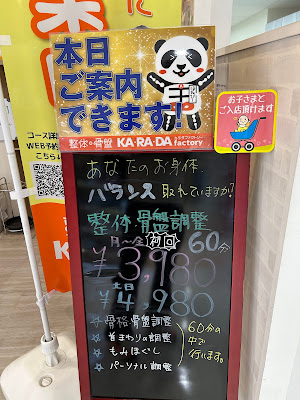 本日
ご案内
できます!
整体×骨盤 KA・RA・DA factory
カラダファクトリー
お子さまと
ご入店頂けます
コース詳
WEB予約
こちら
あなたのお身体
バランス 取れていますか?
整体・骨盤調整
月〜金 初回 60分
¥3,980
土日
¥4,980
☆骨格・骨盤調整
☆首まわりの調整
☆もみほぐし
☆パーソナル調整
60分の
中で
行います。